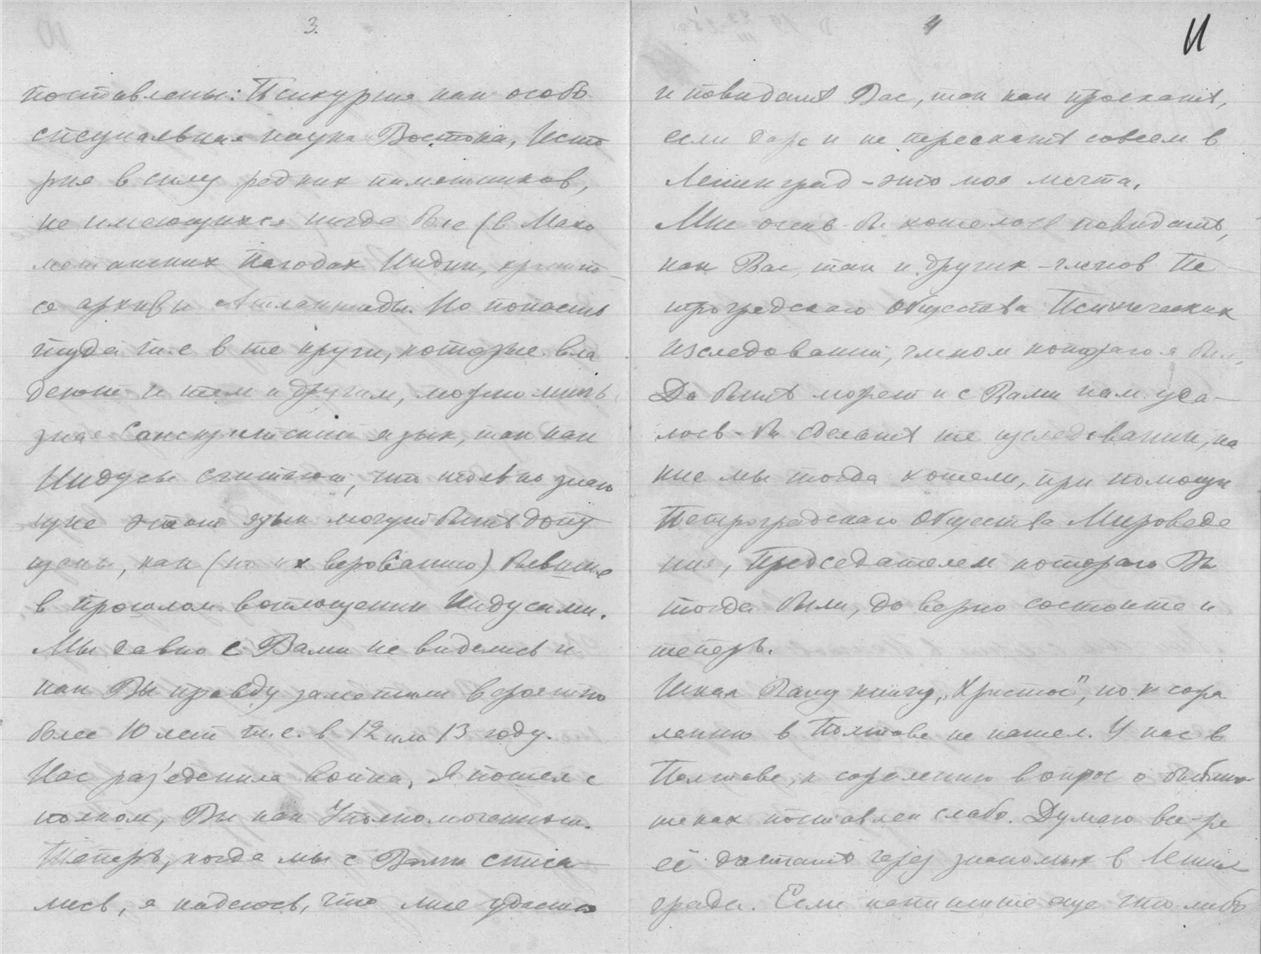 3.
поставлены: Психургия как особо
специальная наука Востока, Исто
рия в силу редких памятников,
не имеющихся нигде более (в Маго
метанских Пагодах Индии, хранит
ся архивы Атлантиды. Но попасть
туда т.е в те круги, которые вла
деют и тем и другим, можно лишь
зная Санскритский язык, так как
Индусы считают, что только знаю
щие этот язык могут быть допу
щены, как (по их верованию) бывшие
в прошлом воплощении Индусами.
Мы давно с Вами не виделись и
как Вы правду заметили вероятно
более 10 лет т.е. в 12 или 13 году.
Нас раз'единила война, Я пошел с
полком, Вы как Уполномоченный.
Теперь, когда мы с Вами списа
лись, я надеюсь, что мне удастся
4
11
и повидать Вас, так как проехать,
если даже и не переехать совсем в
Ленинград - это моя мечта.
Мне очень бы хотелось повидать,
как Вас, так и других - членов Пе
троградского Общества Психических
изследований, членом которого я был,
Да быть может и с Вами нам уда-
лось-бы сделать те изследования, ка
кие мы тогда хотели, при помощи
Петроградского Общества Мироведе
ния, Председателем которого Вы
тогда были, да верно состоите и
теперь.
Искал Вашу книгу "Христос", но к сожа
лению в Полтаве не нашел. У нас в
Полтаве, к сожалению вопрос о библио
теках поставлен слабо. Думаю все-же
её достать через знакомых в Ленин
граде. Если напишите еще что либо